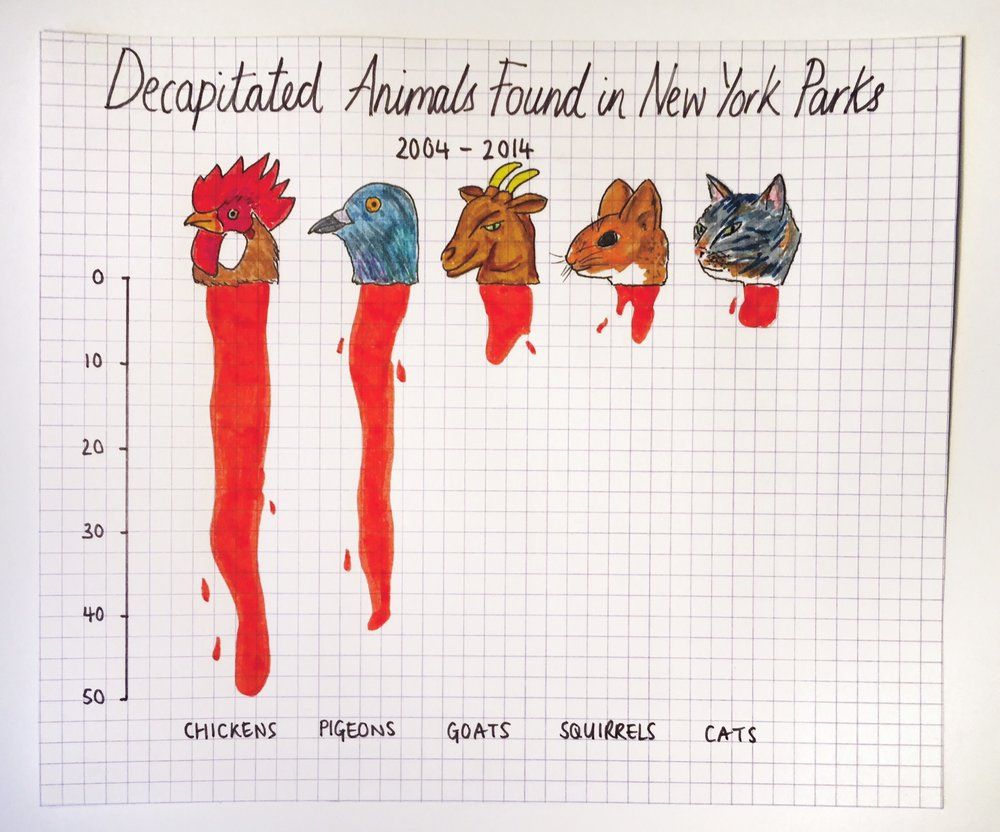 Decapitated Animals Found in New York Parks
2004 - 2014
0
10
20
30
40
50
CHICKENS PIGEONS GOATS SQUIRRELS CATS